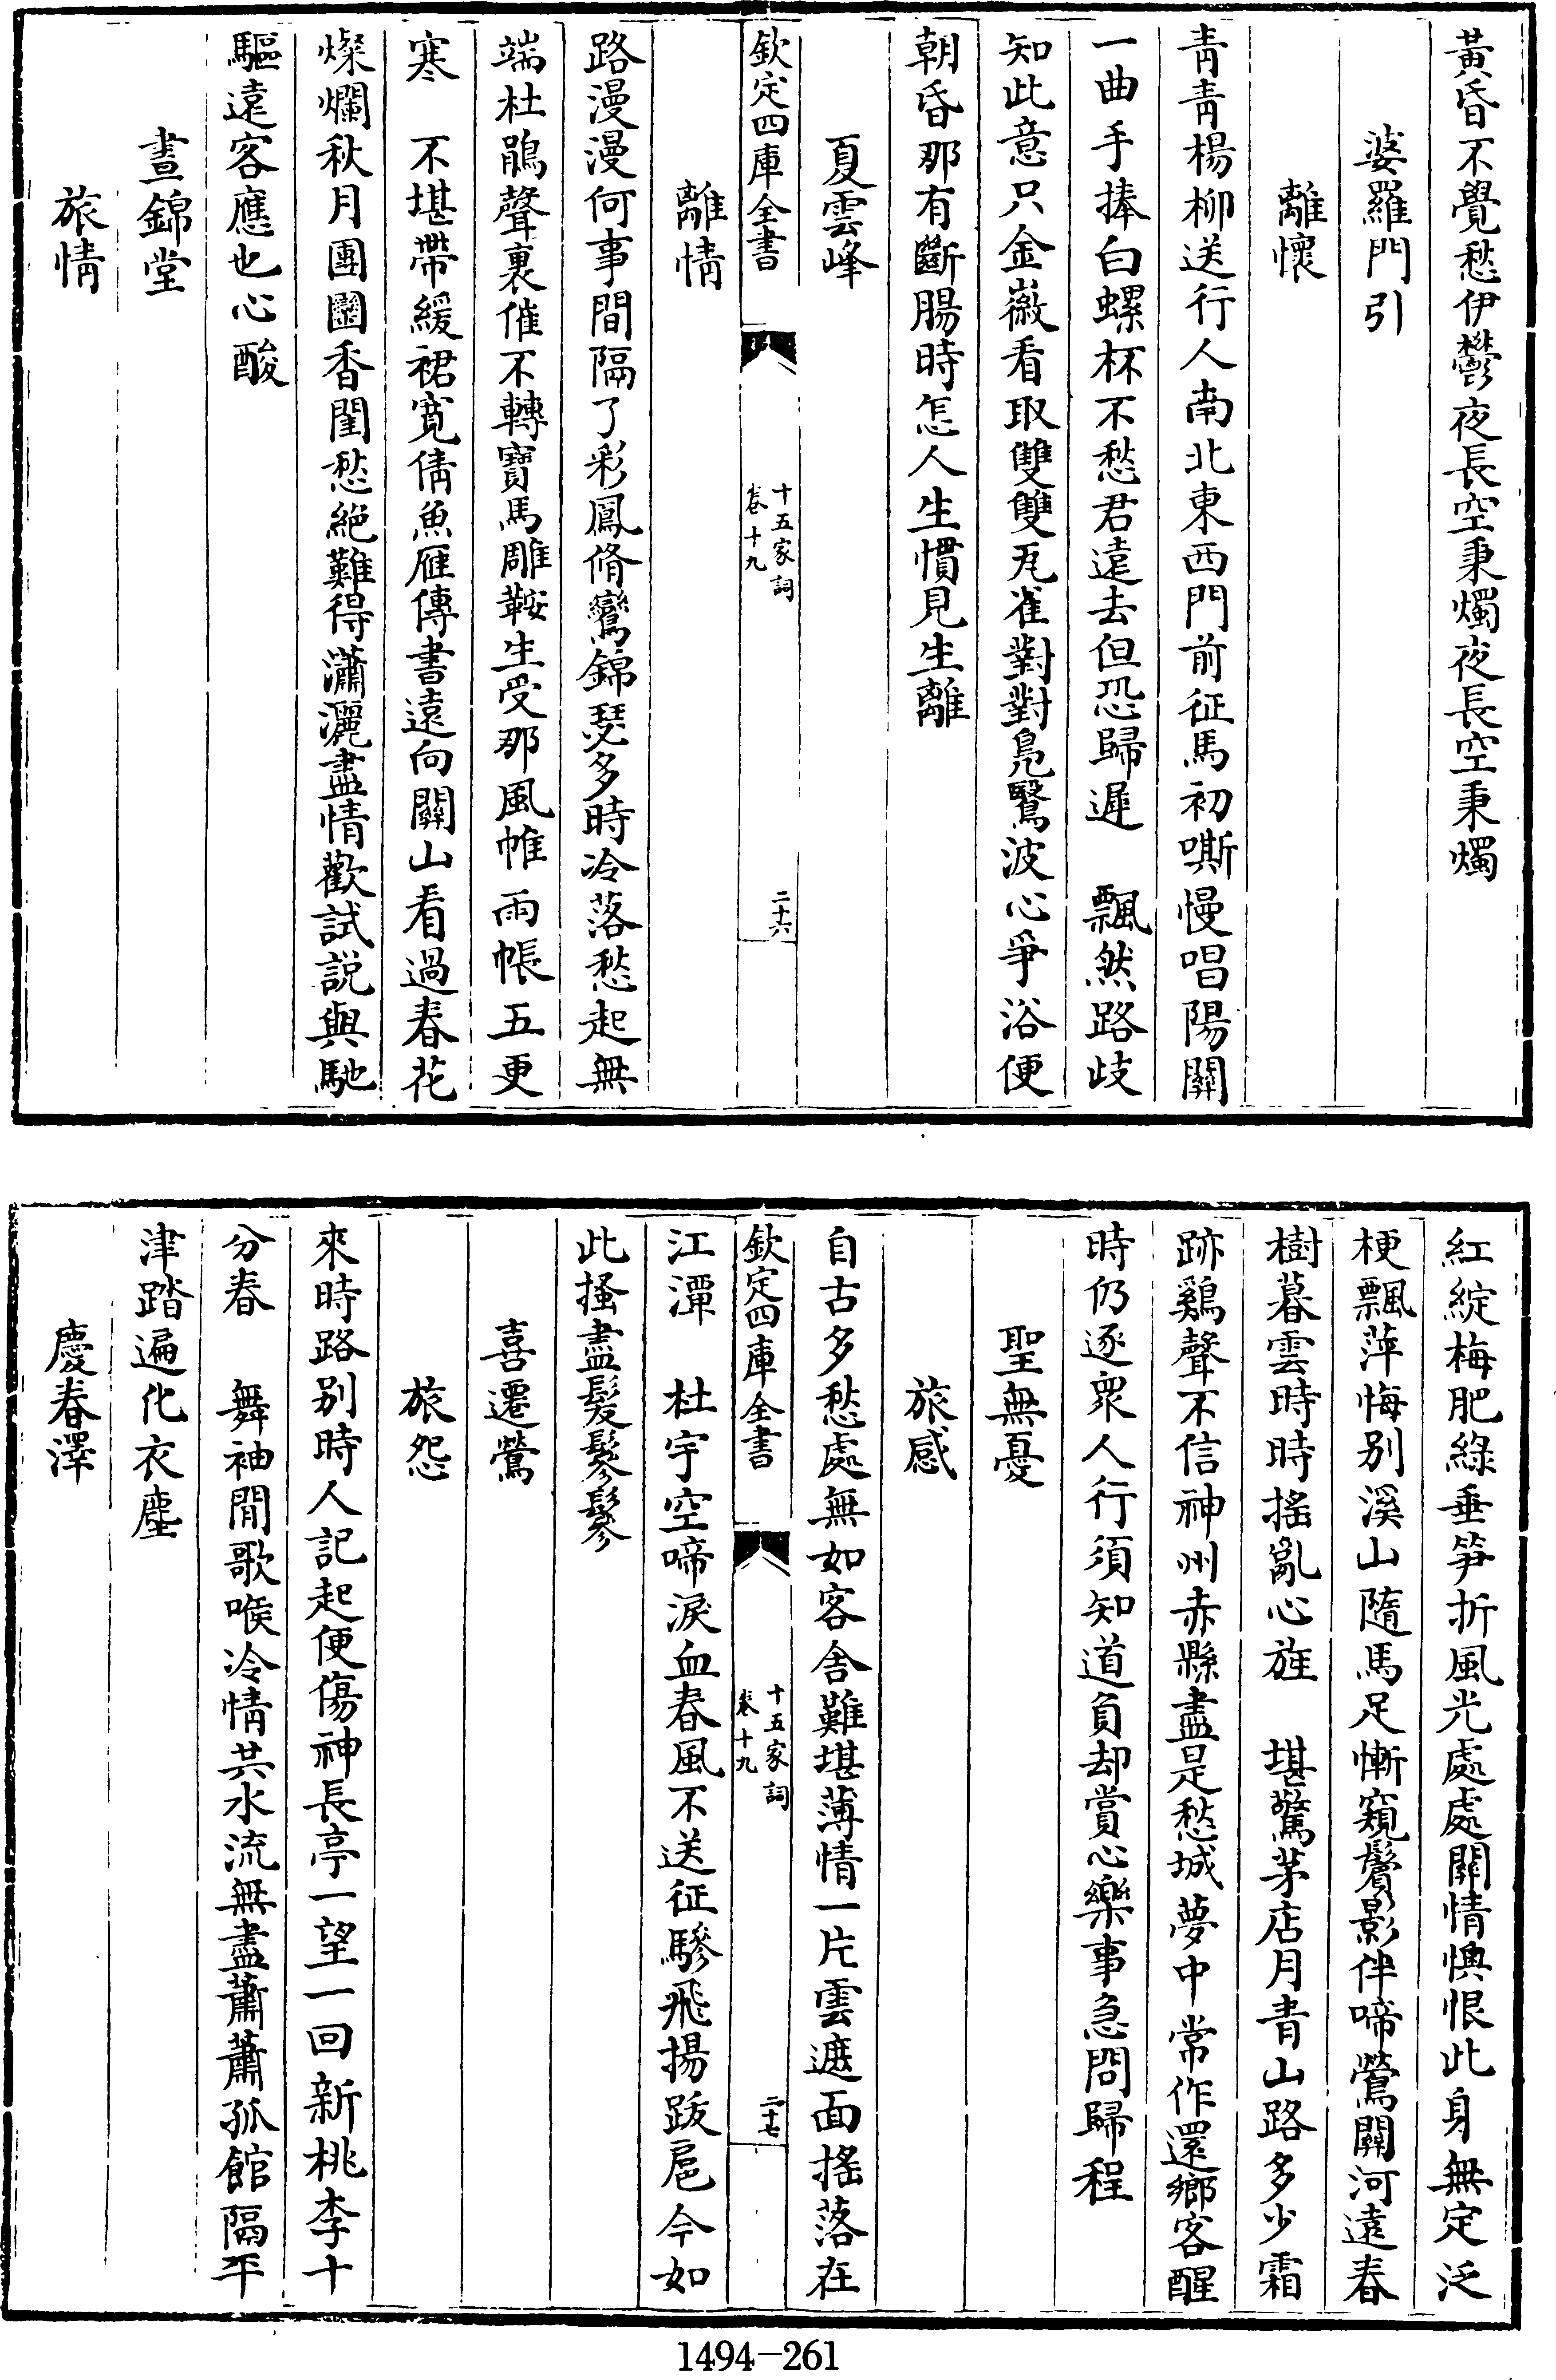 黃昏不覺愁伊鬱夜長空秉燭夜長空秉燭
婆羅門引
離懷
青青楊柳送行人南北東西門前征馬初嘶慢唱陽關
一曲手捧白螺杯不愁君遠去但恐歸遲　飄然路歧
知此意只金徽看取雙雙瓦雀對對鳧鷖波心爭浴便
朝昏那有斷腸時怎人生慣見生離
夏雲峰
欽定四庫全書
十五家詞
卷十九
二十六
離情
路漫漫何事間隔了彩鳳脩鸞錦瑟多時冷落愁起無
端杜鵑聲裏催不轉寶馬雕鞍生受那風帷雨帳五更
寒　不堪帶緩裙寬倩魚雁傳書遠向關山看過春花
燦爛秋月團圞香閨愁絕難得瀟灑盡情歡試說與馳
驅遠客應也心酸
晝錦堂
旅情
紅綻梅肥綠垂笋折風光處處關情懊恨此身無定泛
梗飄萍悔别溪山隨馬足慚窺鬢影伴啼鶯關河遠春
樹暮雲時時搖亂心旌　堪驚茅店月青山路多少霜
跡鷄聲不信神州赤縣盡是愁城夢中常作還鄉客醒
時仍逐衆人行須知道負却賞心樂事急問歸程
聖無憂
旅感
自古多愁處無如客舍難堪薄情一片雲遮面搖落在
欽定四庫全書
十五家詞
卷十九
二十七
江潭　杜宇空啼淚血春風不送征驂飛揚跋扈今如
此搔盡髮鬖鬖
喜遷鶯
旅怨
來時路别時人記起便傷神長亭一望一回新桃李十
分春　舞袖閒歌喉冷情共水流無盡蕭蕭孤館隔平
津踏遍化衣塵
慶春澤
1494-261